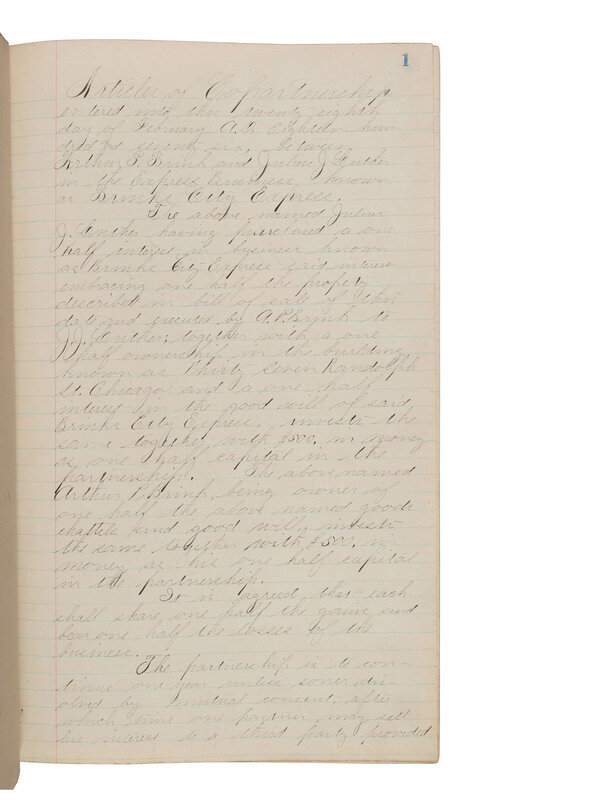 1
Articles of Copartnership
entered into this twenty eighth
day of February A.D. Eighteen hun-
dred and seventy six, between
Arthur P. Brink and Julius J. Luther
in the Express Business, known
as Brinks City Express.
The above named Julius
J. Luther having purchased a one
half interest in business known
as Brinks City Express said interest
embracing one half the property
described in bill of sale of this
date and executed by A. P. Brink to
J. J. Luther; together with a one
half ownership in the building
known as Thirty Seven Randolph
St. Chicago and a one half
interest in the good will of said
Brinks City Express, invests the
same together with $500. in money
as one half capital in the
partnership. The above named
Arthur P. Brink, being owner of
one half the above named goods
chattels and good will, invests
the same together with $500. in
money as his one half capital
in the partnership.
It is agreed that each
shall share one half the gains and
bear one half the losses of the
business.
The partnership is to con-
tinue one year unless soner dis-
olved by mutual consent, after
which time one partner may sell
his interest to a third party provided